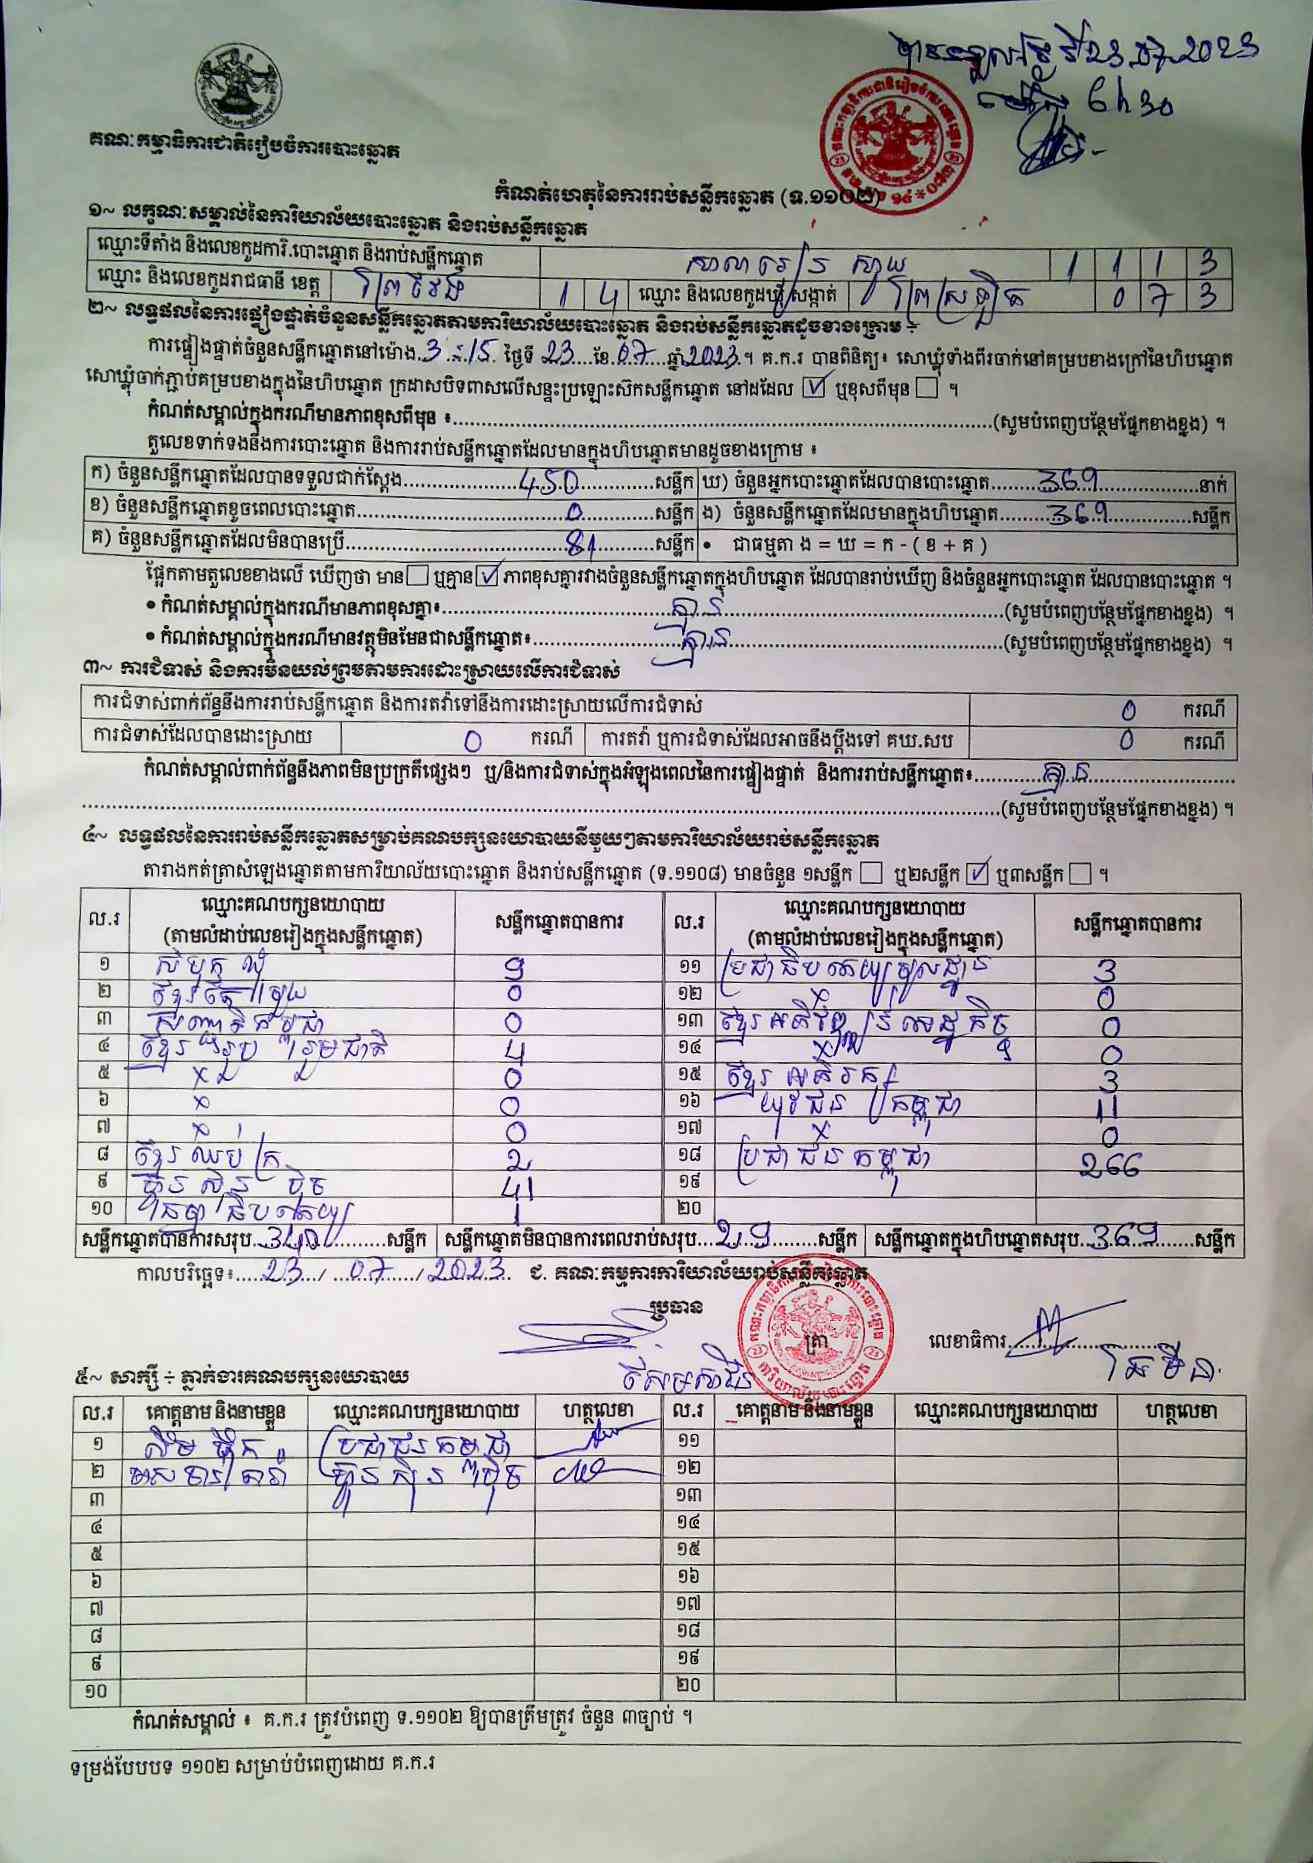 បានទទួលថ្ងៃទី23.07.2023
ម៉ោង 6h30
គណៈកម្មាធិការជាតិរៀបចំការបោះឆ្នោត
កំណត់ហេតុនៃការរាប់សន្លឹកឆ្នោត (ទ.១១០២)
១~ លក្ខណៈសម្គាល់នៃការិយាល័យបោះឆ្នោត និងរាប់សន្លឹកឆ្នោត
ឈ្មោះទីតាំង និងលេខកូដការិ.បោះឆ្នោត និងរាប់សន្លឹកឆ្នោត សាលារៀន ស្វាយ 1 1 1 3
ឈ្មោះ និងលេខកូដរាជធានី ខេត្ត ព្រៃវែង 1 4 ឈ្មោះ និងលេខកូដឃុំ សង្កាត់ ព្រៃស្រឡិត 0 7 3
២~ លទ្ធផលនៃការផ្ទៀងផ្ទាត់ចំនួនសន្លឹកឆ្នោតតាមការិយាល័យបោះឆ្នោត និងរាប់សន្លឹកឆ្នោតដូចខាងក្រោម ÷
ការផ្ទៀងផ្ទាត់ចំនួនសន្លឹកឆ្នោតនៅម៉ោង.3 : 15. ថ្ងៃទី 23....ខែ.07....ឆ្នាំ 2023។ គ.ក.រ បានពិនិត្យ៖ សោឃ្លុំទាំងពីរចាក់នៅគម្របខាងក្រៅនៃហិបឆ្នោត
សោឃ្លុំចាក់ភ្ជាប់គម្របខាងក្នុងនៃហិបឆ្នោត ក្រដាសបិទពាសលើសន្ទះប្រឡោះស៊កសន្លឹកឆ្នោត នៅដដែល ☑ ឬខុសពីមុន ☐ ។
កំណត់សម្គាល់ក្នុងករណីមានភាពខុសពីមុន ៖..........(សូមបំពេញបន្ថែមផ្នែកខាងខ្នង) ។
តួលេខទាក់ទងនឹងការបោះឆ្នោត និងការរាប់សន្លឹកឆ្នោតដែលមានក្នុងហិបឆ្នោតមានដូចខាងក្រោម ៖
ក) ចំនួនសន្លឹកឆ្នោតដែលបានទទួលជាក់ស្តែង..........450..........សន្លឹក ឃ) ចំនួនអ្នកបោះឆ្នោតដែលបានបោះឆ្នោត..........369..........នាក់
ខ) ចំនួនសន្លឹកឆ្នោតខូចពេលបោះឆ្នោត..........0..........សន្លឹក ង) ចំនួនសន្លឹកឆ្នោតដែលមានក្នុងហិបឆ្នោត..........369..........សន្លឹក
គ) ចំនួនសន្លឹកឆ្នោតដែលមិនបានប្រើ..........81..........សន្លឹក • ជាធម្មតា ង = ឃ = ក - ( ខ + គ )
ផ្អែកតាមតួលេខខាងលើ ឃើញថា មាន ☐ ឬគ្មាន ☑ ភាពខុសគ្នារវាងចំនួនសន្លឹកឆ្នោតក្នុងហិបឆ្នោត ដែលបានរាប់ឃើញ និងចំនួនអ្នកបោះឆ្នោត ដែលបានបោះឆ្នោត ។
• កំណត់សម្គាល់ក្នុងករណីមានភាពខុសគ្នា៖..........គ្មាន..........(សូមបំពេញបន្ថែមផ្នែកខាងខ្នង) ។
• កំណត់សម្គាល់ក្នុងករណីមានវត្ថុមិនមែនជាសន្លឹកឆ្នោត៖..........គ្មាន..........(សូមបំពេញបន្ថែមផ្នែកខាងខ្នង) ។
៣~ ការជំទាស់ និងការមិនយល់ព្រមតាមការដោះស្រាយលើការជំទាស់
ការជំទាស់ពាក់ព័ន្ធនឹងការរាប់សន្លឹកឆ្នោត និងការតវ៉ាទៅនឹងការដោះស្រាយលើការជំទាស់ 0 ករណី
ការជំទាស់ដែលបានដោះស្រាយ 0 ករណី ការតវ៉ា ឬការជំទាស់ដែលអាចនឹងប្តឹងទៅ គឃ.សប 0 ករណី
កំណត់សម្គាល់ពាក់ព័ន្ធនឹងភាពមិនប្រក្រតីផ្សេងៗ ឬ/និងការជំទាស់ក្នុងអំឡុងពេលនៃការផ្ទៀងផ្ទាត់ និងការរាប់សន្លឹកឆ្នោត៖..........គ្មាន..........
..........(សូមបំពេញបន្ថែមផ្នែកខាងខ្នង) ។
៤~ លទ្ធផលនៃការរាប់សន្លឹកឆ្នោតសម្រាប់គណបក្សនយោបាយនីមួយៗតាមការិយាល័យរាប់សន្លឹកឆ្នោត
តារាងកត់ត្រាសំឡេងឆ្នោតតាមការិយាល័យបោះឆ្នោត និងរាប់សន្លឹកឆ្នោត (ទ.១១០៨) មានចំនួន ១សន្លឹក ☐ ឬ២សន្លឹក ☑ ឬ៣សន្លឹក ☐ ។
ល.រ ឈ្មោះគណបក្សនយោបាយ (តាមលំដាប់លេខរៀងក្នុងសន្លឹកឆ្នោត) សន្លឹកឆ្នោតបានការ ល.រ ឈ្មោះគណបក្សនយោបាយ (តាមលំដាប់លេខរៀងក្នុងសន្លឹកឆ្នោត) សន្លឹកឆ្នោតបានការ
១ សំបុកឃ្មុំ 9 ១១ ប្រជាធិបតេយ្យមូលដ្ឋាន 3
២ ខ្មែរតែមួយ 0 ១២ x 0
៣ សញ្ជាតិកម្ពុជា 0 ១៣ ខ្មែរអភិវឌ្ឍន៍សេដ្ឋកិច្ច 0
៤ ខ្មែររួបរួមជាតិ 4 ១៤ x 0
៥ x 0 ១៥ ខ្មែរអភិរក្ស 3
៦ x 0 ១៦ យុវជនកម្ពុជា 11
៧ x 0 ១៧ x 0
៨ ខ្មែរឈប់ក្រ 2 ១៨ ប្រជាជនកម្ពុជា 266
៩ ហ៊្វុនស៊ិនប៉ិច 41 ១៩
១០ ធិបតេយ្យ 1 ២០
សន្លឹកឆ្នោតបានការសរុប..340..........សន្លឹក សន្លឹកឆ្នោតមិនបានការពេលរាប់សរុប...29.......សន្លឹក សន្លឹកឆ្នោតក្នុងហិបឆ្នោតសរុប..369.......សន្លឹក
កាលបរិច្ឆេទ៖.....23.../ ...07...../ 2023.. ជ. គណៈកម្មការការិយាល័យរាប់សន្លឹកឆ្នោត
ប្រធាន
ត្រា
លេខាធិការ..........
៥~ សាក្សី ÷ ភ្នាក់ងារគណបក្សនយោបាយ
ល.រ គោត្តនាម និងនាមខ្លួន ឈ្មោះគណបក្សនយោបាយ ហត្ថលេខា ល.រ គោត្តនាម និងនាមខ្លួន ឈ្មោះគណបក្សនយោបាយ ហត្ថលេខា
១ ប្រជាជនកម្ពុជា ១១
២ ហ៊្វុនស៊ិនប៉ិច ១២
៣ ១៣
៤ ១៤
៥ ១៥
៦ ១៦
៧ ១៧
៨ ១៨
៩ ១៩
១០ ២០
កំណត់សម្គាល់ ៖ គ.ក.រ ត្រូវបំពេញ ទ.១១០២ ឱ្យបានត្រឹមត្រូវ ចំនួន ៣ច្បាប់ ។
ទម្រង់បែបបទ ១១០២ សម្រាប់បំពេញដោយ គ.ក.រ